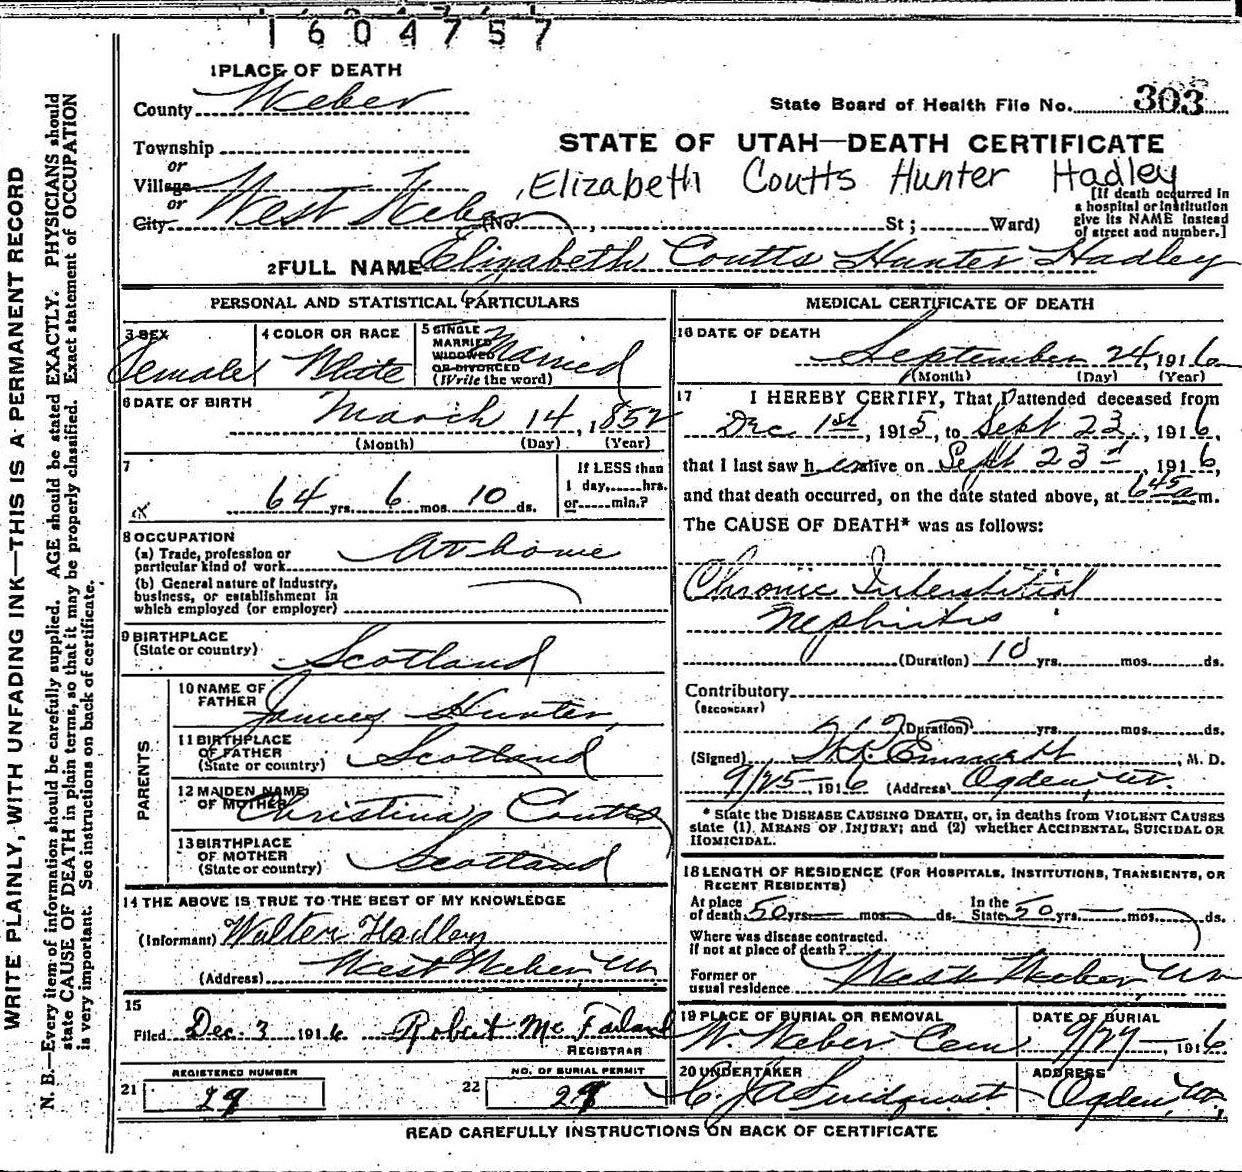 1604757
1 PLACE OF DEATH
County Weber
State Board of Health File No. 303
Township
or
Village
or
City West Weber (No. , St; Ward)
STATE OF UTAH—DEATH CERTIFICATE
Elizabeth Coutts Hunter Hadley
[If death occurred in
a hospital or institution
give its NAME instead
of street and number.]
2 FULL NAME Elizabeth Coutts Hunter Hadley
PERSONAL AND STATISTICAL PARTICULARS
3 SEX
Female
4 COLOR OR RACE
White
5 SINGLE
MARRIED
WIDOWED
OR DIVORCED
(Write the word)
Married
6 DATE OF BIRTH
March 14, 1852
(Month) (Day) (Year)
7
64 yrs. 6 mos. 10 ds.
If LESS than
1 day, hrs.
or min.?
8 OCCUPATION
(a) Trade, profession or
particular kind of work At home
(b) General nature of industry,
business, or establishment in
which employed (or employer)
9 BIRTHPLACE
(State or country) Scotland
PARENTS
10 NAME OF
FATHER James Hunter
11 BIRTHPLACE
OF FATHER
(State or country) Scotland
12 MAIDEN NAME
OF MOTHER Christina Coutts
13 BIRTHPLACE
OF MOTHER
(State or country) Scotland
14 THE ABOVE IS TRUE TO THE BEST OF MY KNOWLEDGE
(Informant) Walter Hadley
(Address) West Weber Ut
15
Filed Dec. 3 1916 Robert Mc Farland
REGISTRAR
21 REGISTERED NUMBER
29
22 NO. OF BURIAL PERMIT
29
MEDICAL CERTIFICATE OF DEATH
16 DATE OF DEATH
September 24, 1916
(Month) (Day) (Year)
17 I HEREBY CERTIFY, That I attended deceased from
Dec. 1st, 1915, to Sept 23, 1916,
that I last saw her alive on Sept 23d, 1916,
and that death occurred, on the date stated above, at 6 45 a m.
The CAUSE OF DEATH* was as follows:
Chronic Interstitial
Nephritis
(Duration) 10 yrs. mos. ds.
Contributory
(SECONDARY)
(Duration) yrs. mos. ds.
(Signed) , M. D.
9/25-1916 (Address) Ogden, Ut.
* State the DISEASE CAUSING DEATH, or, in deaths from VIOLENT CAUSES
state (1) MEANS OF INJURY; and (2) whether ACCIDENTAL, SUICIDAL OR
HOMICIDAL.
18 LENGTH OF RESIDENCE (FOR HOSPITALS, INSTITUTIONS, TRANSIENTS, OR
RECENT RESIDENTS)
At place
of death 50 yrs. mos. ds.
In the
State 50 yrs. mos. ds.
Where was disease contracted.
If not at place of death?
Former or
usual residence West Weber Ut
19 PLACE OF BURIAL OR REMOVAL
W. Weber Cem
DATE OF BURIAL
9/27-, 1916
20 UNDERTAKER
ADDRESS
Ogden, Ut,
READ CAREFULLY INSTRUCTIONS ON BACK OF CERTIFICATE
WRITE PLAINLY, WITH UNFADING INK—THIS IS A PERMANENT RECORD
N. B.—Every item of information should be carefully supplied. AGE should be stated EXACTLY. PHYSICIANS should
state CAUSE OF DEATH in plain terms, so that it may be properly classified. Exact statement of OCCUPATION
is very important. See instructions on back of certificate.